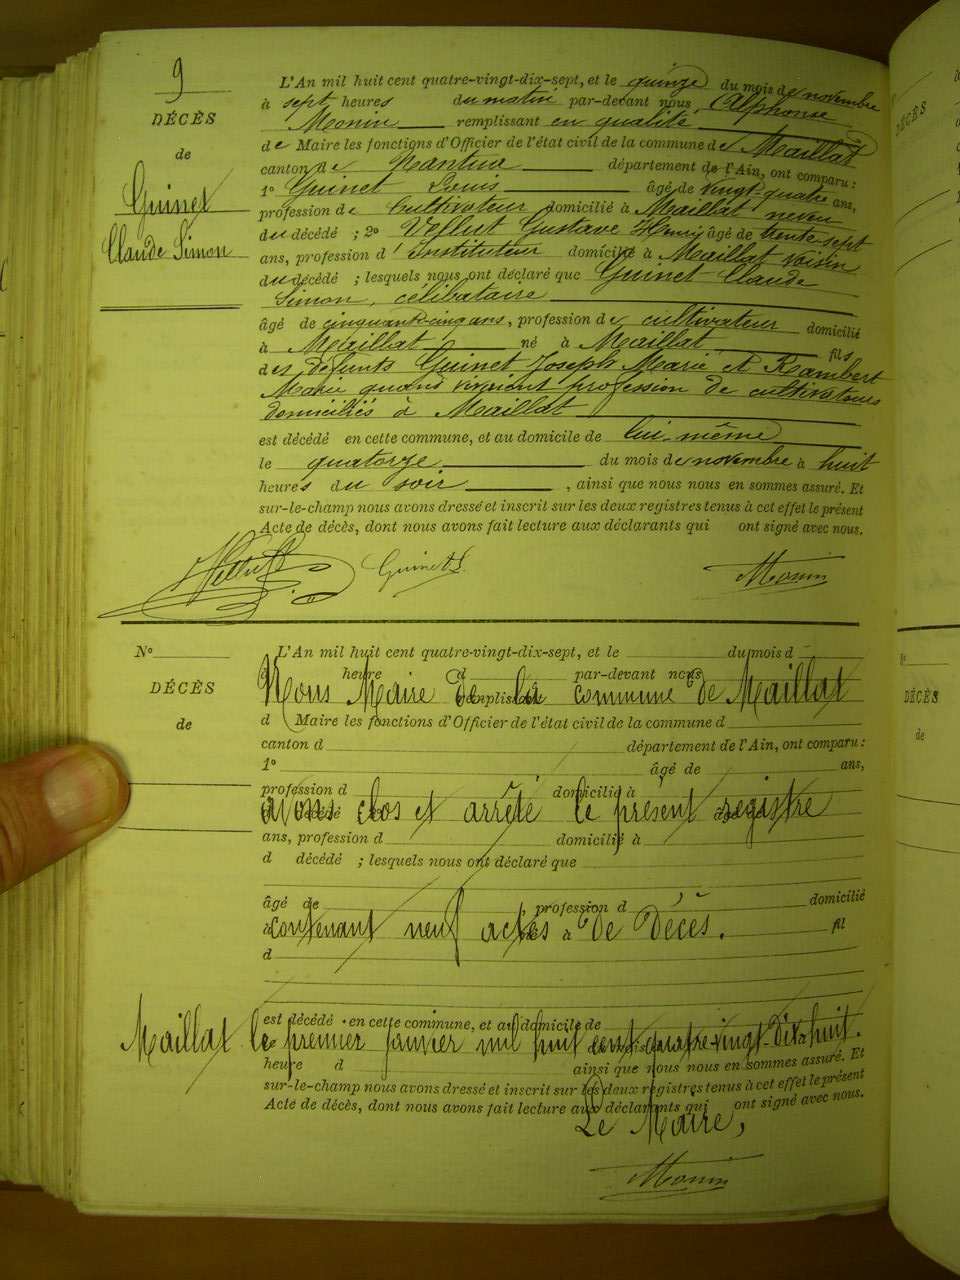 9
DÉCÈS
de
Guinet
Claude Simon
L'An mil huit cent quatre-vingt-dix-sept, et le quinze du mois de novembre
à sept heures du matin par-devant nous Alphonse
Monin remplissant en qualité
de Maire les fonctions d'Officier de l'état civil de la commune de Maillat
canton de Nantua département de l'Ain, ont comparu :
1º Guinet Louis âgé de vingt-quatre ans,
profession de cultivateur domicilié à Maillat neveu
du décédé ; 2º Vellut Gustave Henri âgé de trente-sept
ans, profession d'Instituteur domicilié à Maillat voisin
du décédé ; lesquels nous ont déclaré que Guinet Claude
Simon, célibataire
âgé de cinquante-cinq ans, profession de cultivateur domicilié
à Maillat né à Maillat fils
des défunts Guinet Joseph Marie et Rambert
Marie quand vivaient profession de cultivateurs
domiciliés à Maillat
est décédé en cette commune, et au domicile de lui-même
le quatorze du mois de novembre à huit
heures du soir, ainsi que nous nous en sommes assuré. Et
sur-le-champ nous avons dressé et inscrit sur les deux registres tenus à cet effet le présent
Acte de décès, dont nous avons fait lecture aux déclarants qui ont signé avec nous.
Vellut G Guinet L. Monin
Nº
DÉCÈS
de
L'An mil huit cent quatre-vingt-dix-sept, et le du mois d
à heure d par-devant nous
Nous Maire de la commune de Maillat
remplissant
d Maire les fonctions d'Officier de l'état civil de la commune d
canton d département de l'Ain, ont comparu :
1º âgé de ans,
profession d domicilié à
avons clos et arrêté le présent registre
d décédé
ans, profession d domicilié à
d décédé ; lesquels nous ont déclaré que
âgé de , profession d domicilié
à à fil
contenant neuf actes de Décès.
d
est décédé en cette commune, et au domicile de
Maillat le premier Janvier mil huit cent quatre-vingt-dix-huit.
heure d ainsi que nous nous en sommes assuré. Et
sur-le-champ nous avons dressé et inscrit sur les deux registres tenus à cet effet le présent
Acte de décès, dont nous avons fait lecture aux déclarants qui ont signé avec nous.
Le Maire,
Monin
DÉCÈS
DÉCÈS
de